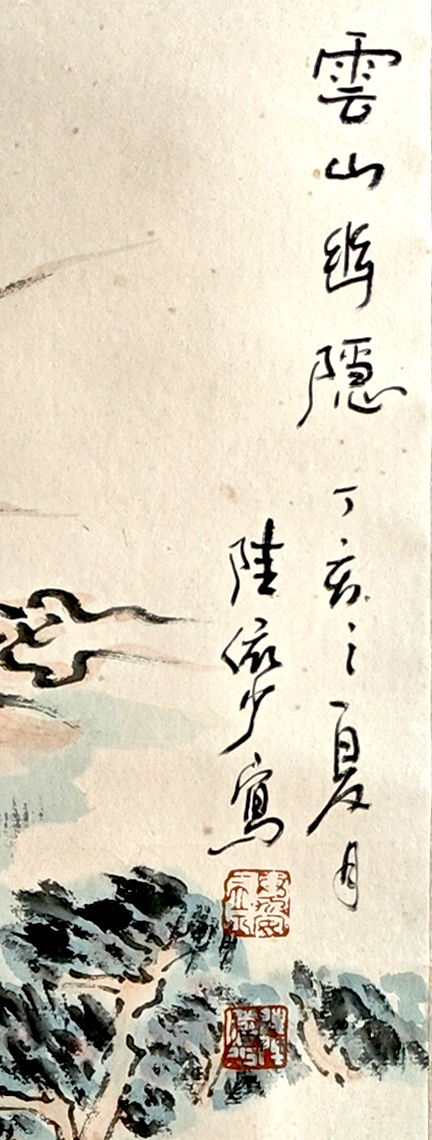 雲山幽隱
丁亥之夏月
陸儼少寫